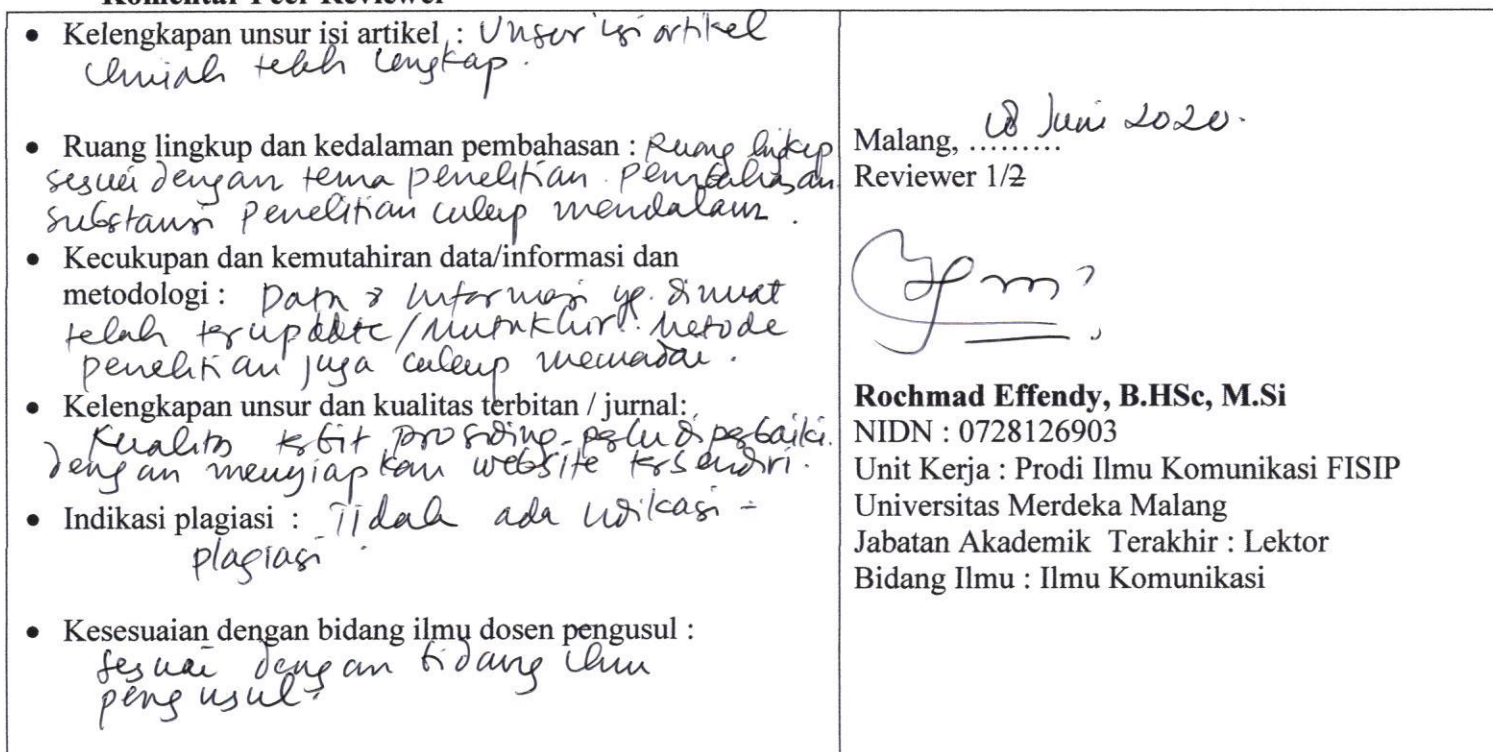 Komentar Peer Reviewer
• Kelengkapan unsur isi artikel : Unsur isi artikel
ilmiah telah lengkap.
• Ruang lingkup dan kedalaman pembahasan : Ruang lingkup
sesuai dengan tema penelitian. Pembahasan
substansi penelitian cukup mendalam.
• Kecukupan dan kemutahiran data/informasi dan
metodologi : Data & Informasi yg. dimuat
telah terupdate/mutakhir. Metode
penelitian juga cukup memadai.
• Kelengkapan unsur dan kualitas terbitan / jurnal:
Kualitas terbit prosiding perlu diperbaiki.
dengan menyiapkan website tersendiri.
• Indikasi plagiasi : Tidak ada indikasi -
plagiasi.
• Kesesuaian dengan bidang ilmu dosen pengusul :
sesuai dengan bidang ilmu
pengusul.
Malang, ......... Juni 2020.
Reviewer 1/2
Rochmad Effendy, B.HSc, M.Si
NIDN : 0728126903
Unit Kerja : Prodi Ilmu Komunikasi FISIP
Universitas Merdeka Malang
Jabatan Akademik Terakhir : Lektor
Bidang Ilmu : Ilmu Komunikasi